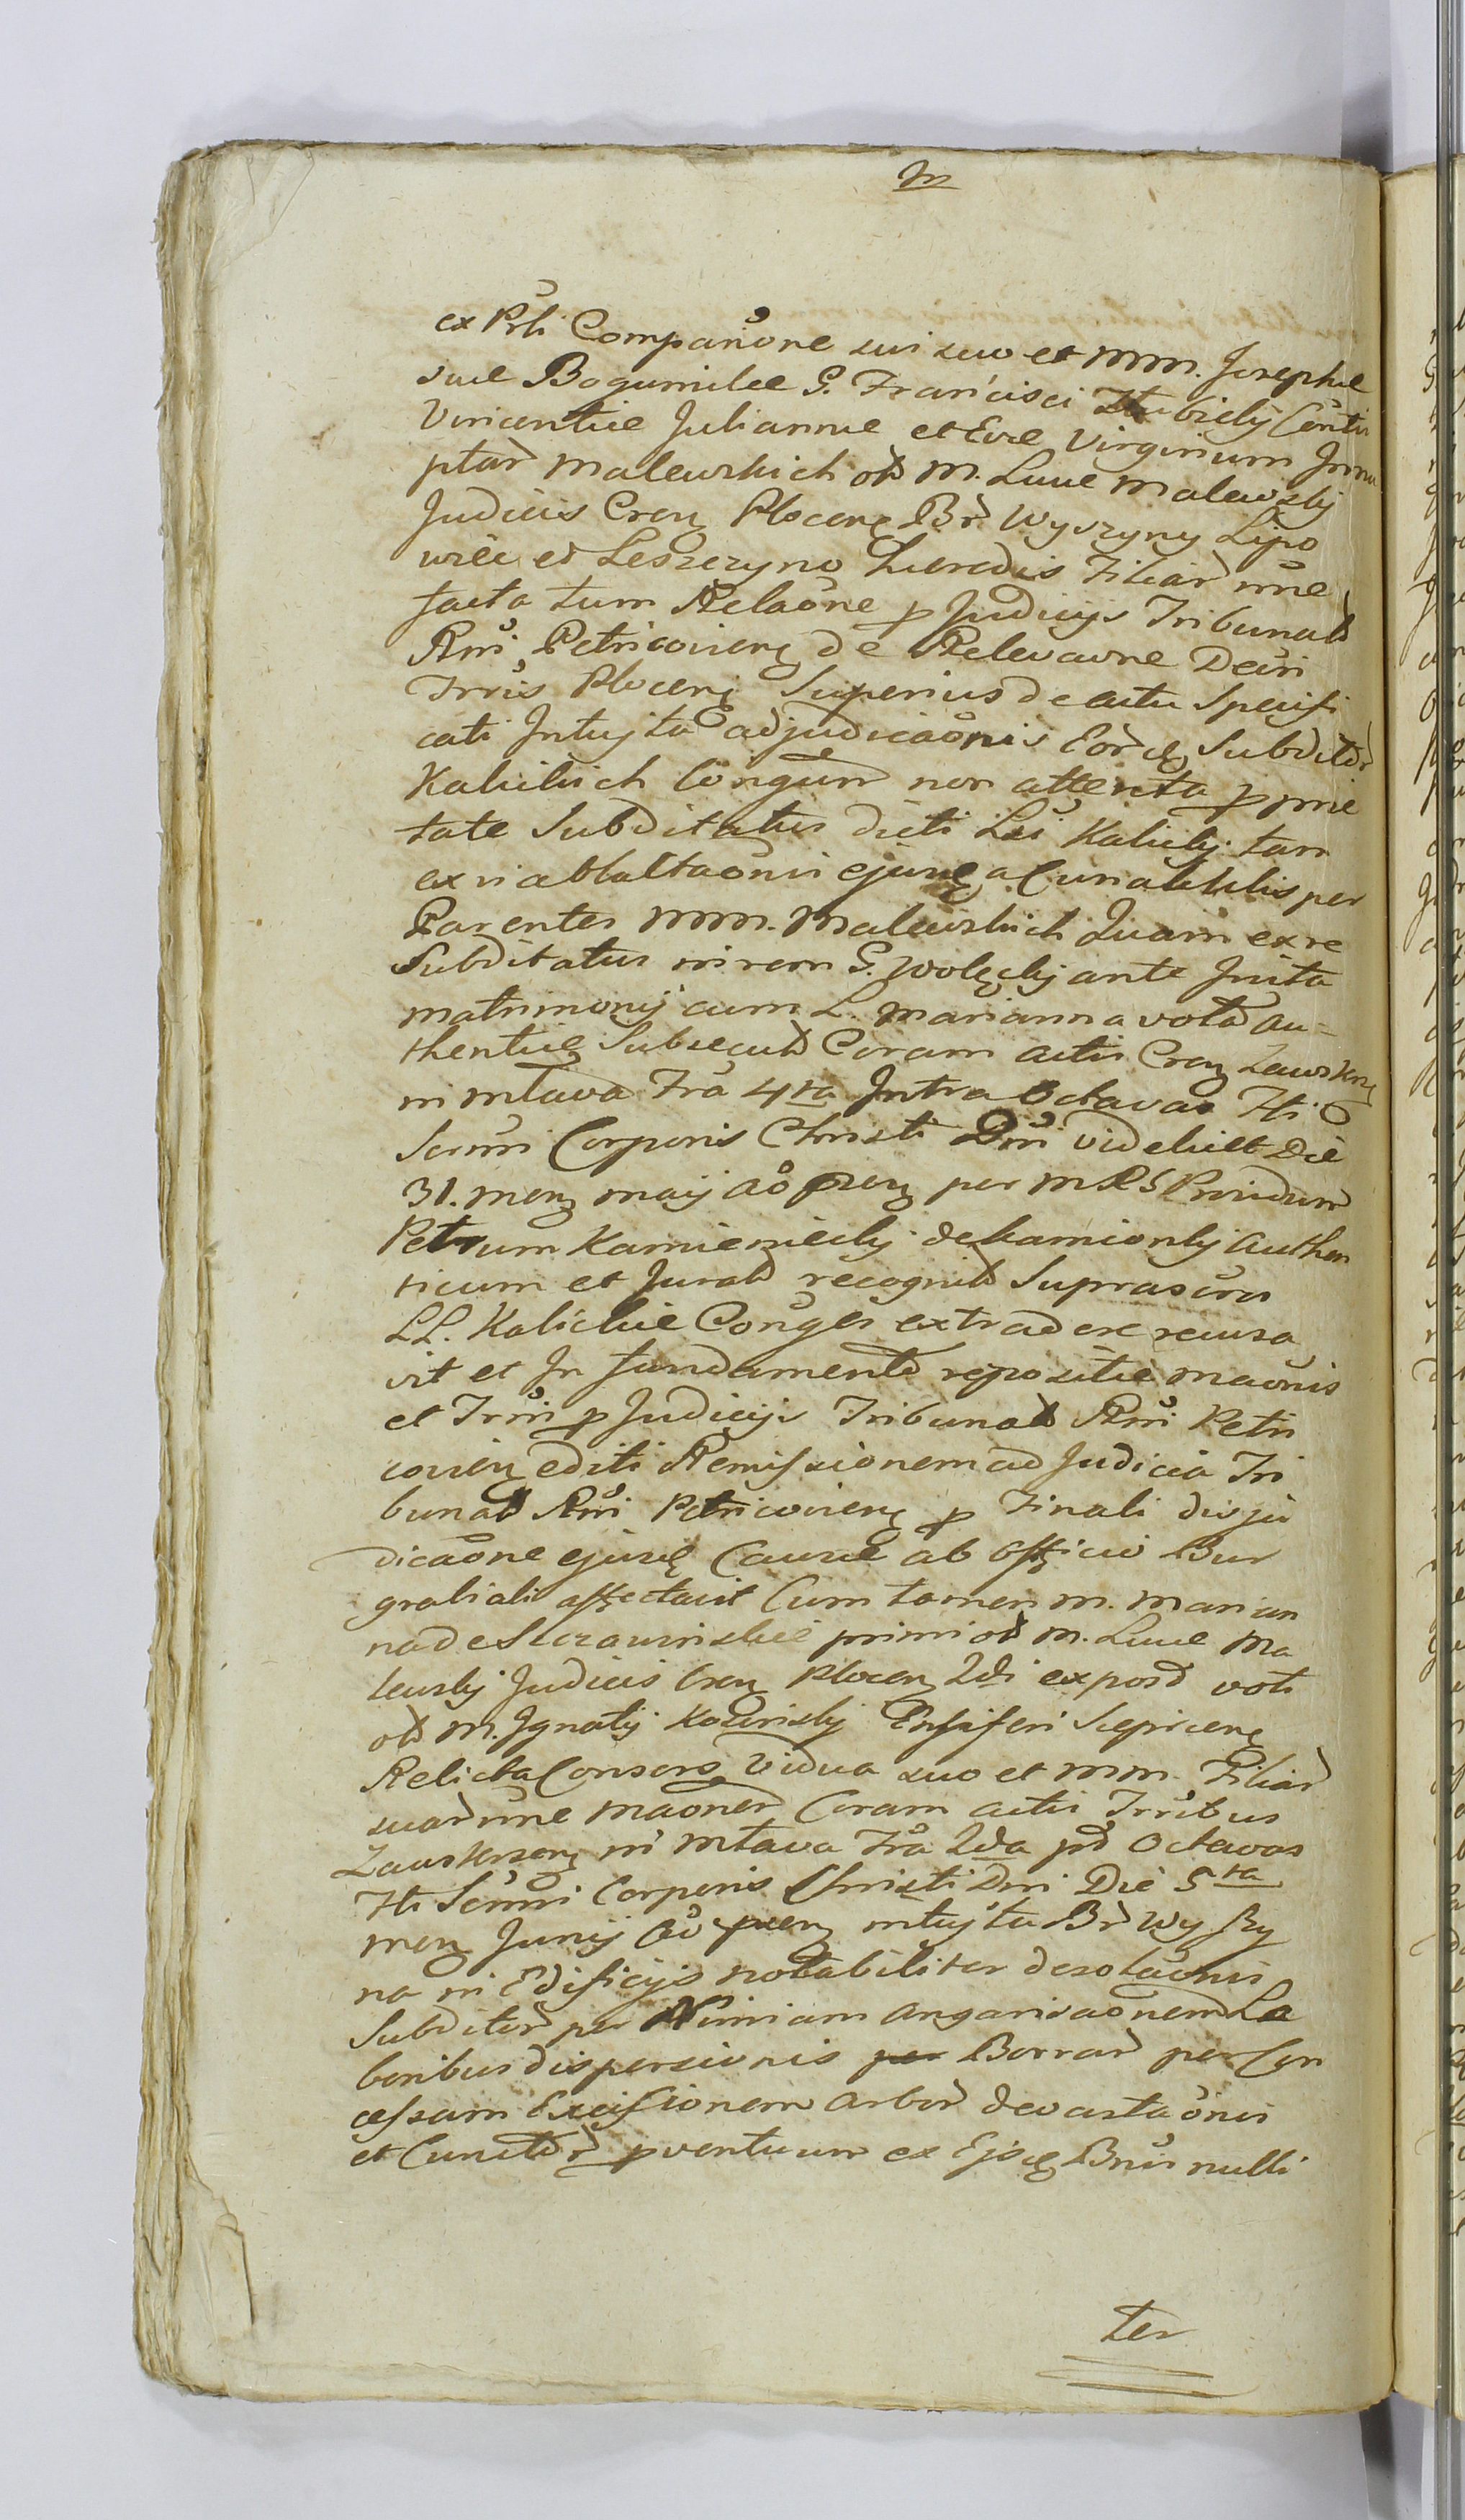 m
ex Prli Compariõne sui suo et mm. Josephae
suae Bogumilae G. Francisci Zubieky
Vincentiae Juliannae et Evae Virginum Innu
ptar Malewskich olt M. Lucae Malewsky
Judicis Cren Plocen Br Wyszyny Lipo
wiec et Leszczyno Haeredis Filiar nne
facta tum Relaõne p Judicijs Tribunalt
Rni Petricovien de Relevaone Decri
Trris Plocen Superius de actu Specifi
cati Intujtu adjudicaõnis Eorq Subditor
Kalickich Congum non attenta p prie
tate Subditatus dicti Lsi Kalicky tam
ex vi ablactaõnis ejusq a Cunabulis per
Parentes mm. Malewskich Quam ex re
Subditatus in rem G. Wolecky ante Inita
matrimonij cum L. Marianna vota au=
thentice Subsecut Coram actis Cren Zawskrn
in Mlava Fra 4ta Intra Octavas Fti
Scrmi Corporis Christi Dni videlicet Die
31. men maij Ao pren per MRS Providum
Petrum Kamieniecky de Kamionky Authen
ticum et Jurat recognit Suprascros
LL. Kalickie Conges extradere recusa
vit et In fundamento repositie maonis
et Trrii p Judicijs Tribunal Rni Petri
covien editi Remissionem ad Judicia Tri
bunal Rni Petricovien p Finali disju
dicaõne ejusq Causae ab Officio Bur
grabiali affectavit Cum tamen M. Marian
na de Szczawinskie primi olt M. Lucae Ma
lewsky Judicis Cren Plocen 2di ex post voti
olt M. Ignatij Kozinsky Ensiferi Sieprcen
Relicta Consors Vidua suo et mm. Filiar
suar nne maoner Coram actis Trribus
Zawskrzen in Mlava Fra 2da pt Octavas
Fti Scrmi Corporis Christi Dni Die 5ta
men Junij Ao pren intujtu Br Wyszy
na in Edificijs notabiliter desolaonis
Subditor per Nimiam angarisaõnem La
boribus dispersionis per Borrar per Con
cessam Excisionem arbor devastaõnis
et Cunctor pventuum ex Ejsq Bnis nulli
ter